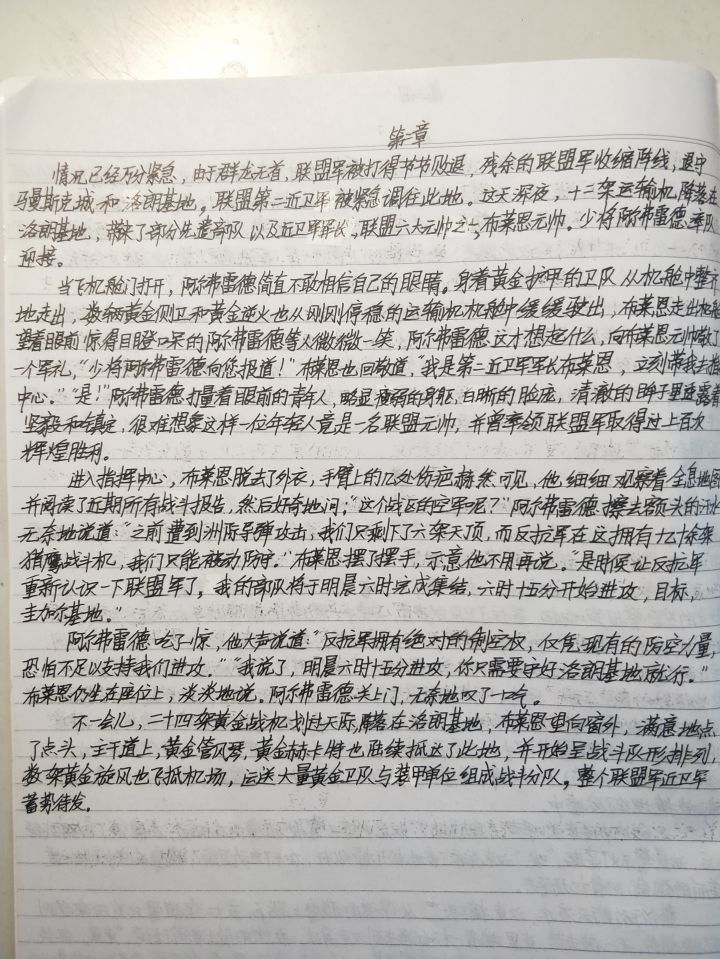 第二章
情况已经万分紧急，由于群龙无首，联盟军被打得节节败退，残余的联盟军收缩阵线，退守
马曼斯克城和洛朗基地，联盟第二近卫军被紧急调往此地。这天深夜，十三架运输机降落在
洛朗基地，带来了部分先遣部队以及近卫军军长，联盟六大元帅之一，布莱恩元帅。少将阿尔弗雷德率队
迎接。
当飞机舱门打开，阿尔弗雷德简直不敢相信自己的眼睛。身着黄金护甲的卫队从机舱中整齐
地走出，数辆黄金侧卫和黄金逆火也从刚刚停稳的运输机机舱中缓缓驶出，布莱恩走出机舱
望着眼前惊得目瞪口呆的阿尔弗雷德等人微微一笑，阿尔弗雷德这才想起什么，向布莱恩元帅敬了
一个军礼，“少将阿尔弗雷德向您报道！”布莱恩也回敬道，“我是第二近卫军军长布莱恩，立刻带我去指
中心。”“是！”阿尔弗雷德打量着眼前的青年人，略显瘦弱的身躯，白晰的脸庞，清澈的眸子里透露着
坚毅和镇定，很难想象这样一位年轻人竟是一名联盟元帅，并曾率领联盟军取得过上百次
辉煌胜利。
进入指挥中心，布莱恩脱去了外衣，手臂上的几处伤疤赫然可见，他细细观察着全息地图
并阅读了近期所有战斗报告，然后好奇地问：“这个战区的空军呢？”阿尔弗雷德擦去额头的汗水
无奈地说道：“之前遭到洲际导弹攻击，我们只剩下了六架天顶，而反抗军在这拥有九十余架
猎鹰战斗机，我们只能被动防守。”布莱恩摆了摆手，示意他不用再说。“是时候让反抗军
重新认识一下联盟军了，我的部队将于明晨六时完成集结，六时十五分开始进攻，目标，
圭加尔基地。”
阿尔弗雷德吃了一惊，他大声说道：“反抗军拥有绝对的制空权，仅凭现有的防空力量，
恐怕不足以支持我们进攻。”“我说了，明晨六时十五分进攻，你只需要守好洛朗基地就行。”
布莱恩仍坐在座位上，淡淡地说。阿尔弗雷德关上门，无奈地叹了一口气。
不一会儿，二十四架黄金战机划过天际降落在洛朗基地，布莱恩望向窗外，满意地点
了点头，主干道上，黄金管风琴，黄金赫卡特也陆续抵达了此地，并开始呈战斗队形排列，
数架黄金旋风也飞抵机场，运送大量黄金卫队与装甲单位组成战斗分队，整个联盟军近卫军
蓄势待发。